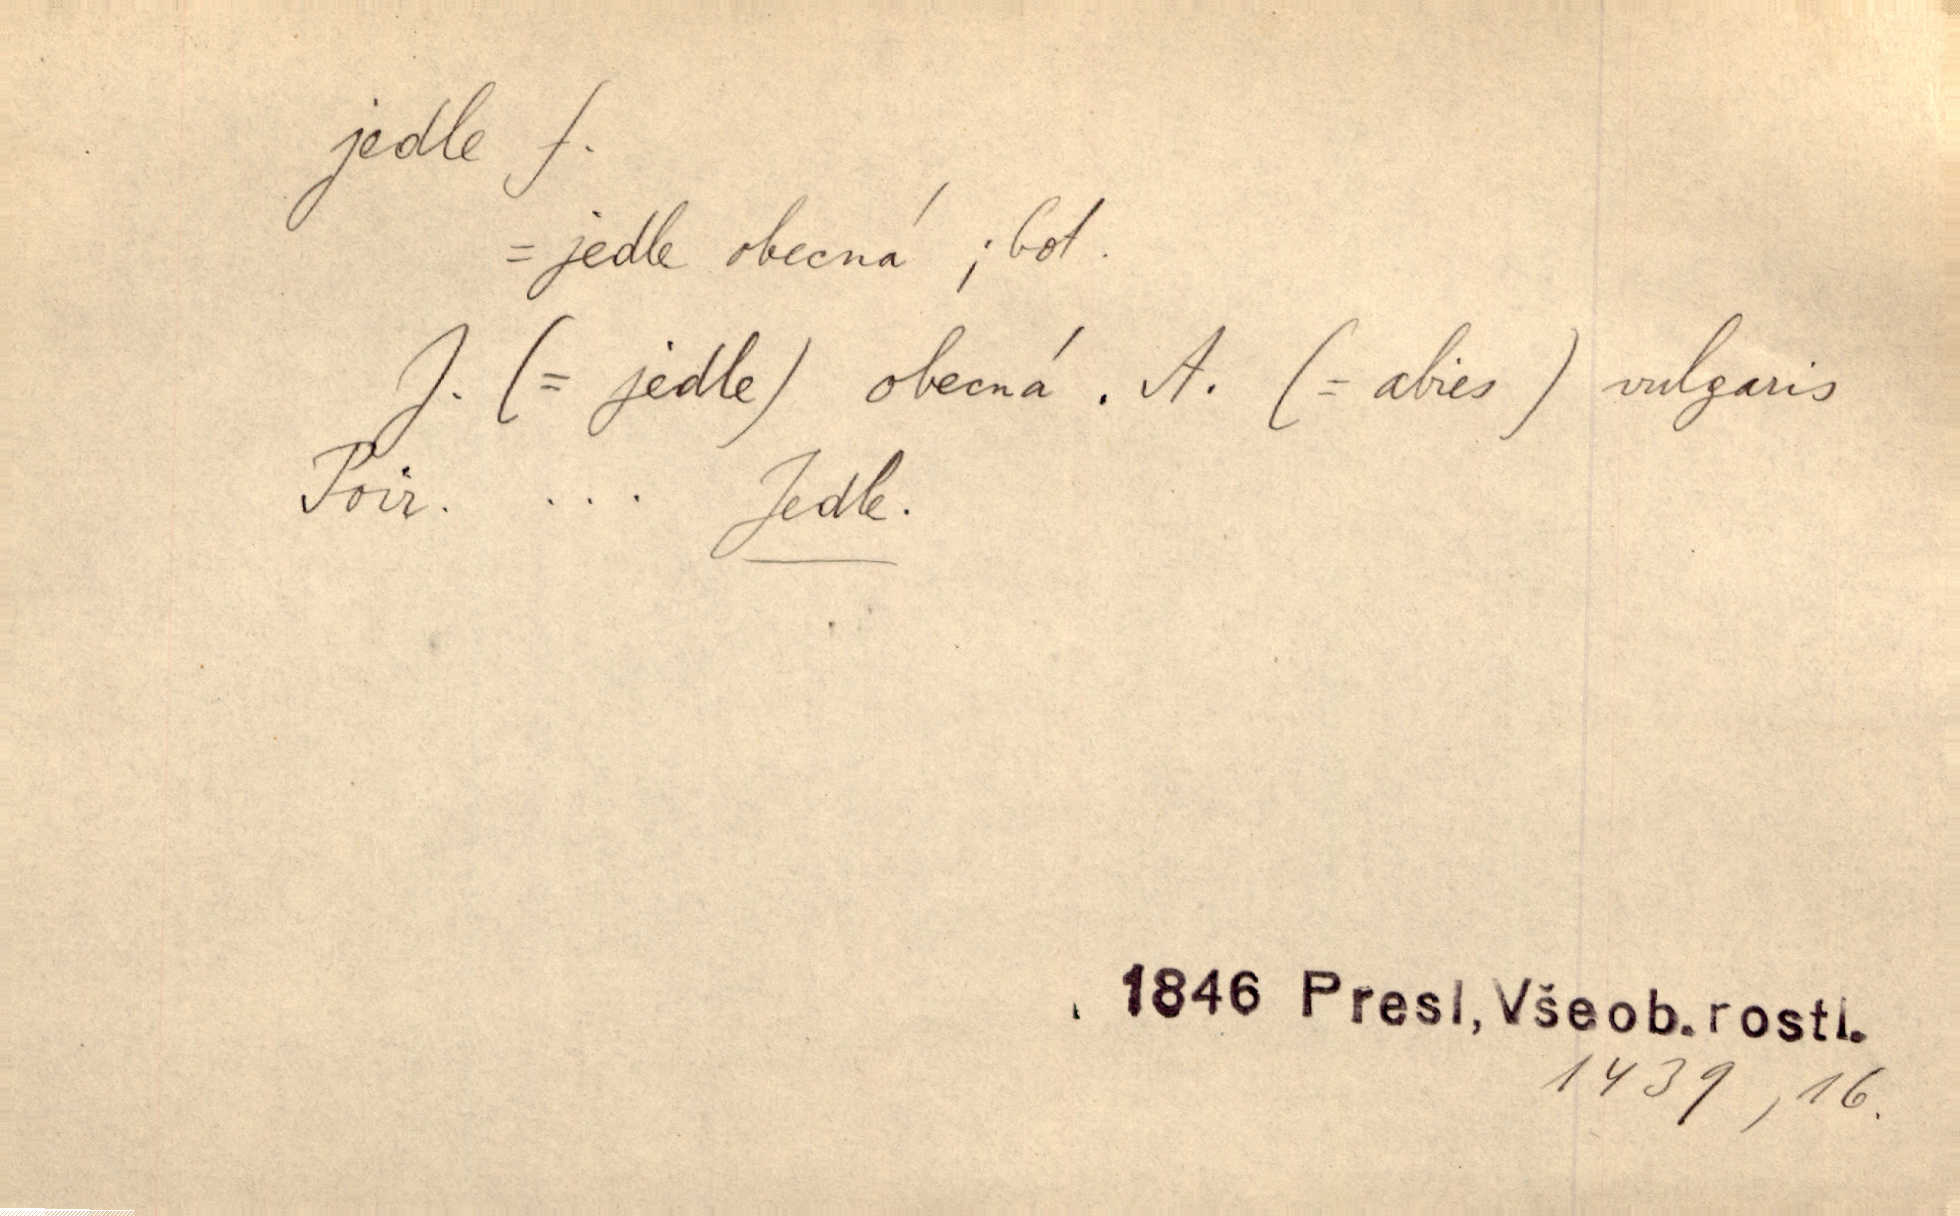 jedle f.
= jedle obecná ; bot.
J. (= jedle) obecná. A. (= abies) vulgaris
Poir. ... Jedle.
1846 Presl, Všeob. rostl.
1439, 16.